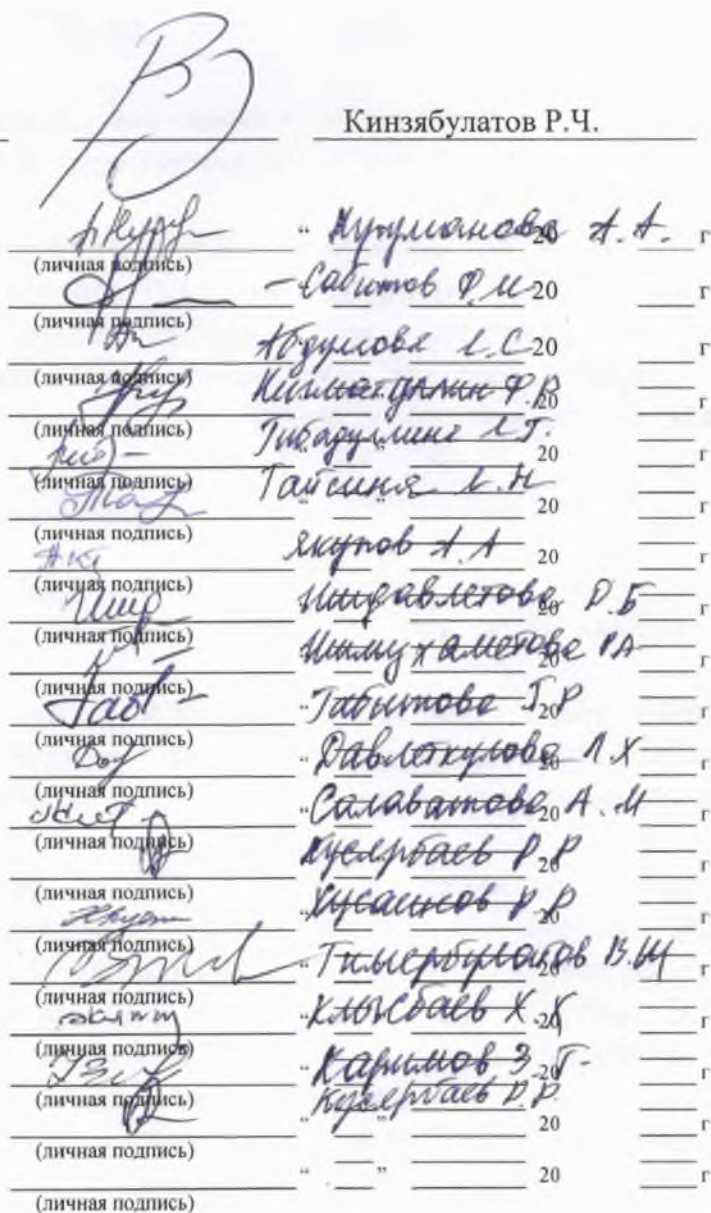 Кинзябулатов Р.Ч.
" Кутуманова 20 А.А. г
(личная подпись)
- Сабитов Ф.И 20 г
(личная подпись)
Абдулова Л.С 20 г
(личная подпись)
Нигматуллин Ф.Р 20 г
(личная подпись)
Гибадуллина Л.Г. 20 г
(личная подпись)
Тайсина Л.Н 20 г
(личная подпись)
Якупов А.А 20 г
(личная подпись)
Ишдавлетова 20 Р.Б г
(личная подпись)
Ишмухаметова РА 20 г
(личная подпись)
" Габитова Г.Р 20 г
(личная подпись)
" Давлеткулова 20 Л.Х г
(личная подпись)
" Салаватова 20 А.М г
(личная подпись)
Кусярбаев Р.Р 20 г
(личная подпись)
Хусаинов Р.Р 20 г
(личная подпись)
" Тимербулатов 20 В.Ш г
(личная подпись)
" Клысбаев Х.Х 20 г
(личная подпись)
" Каримов З.Г. 20 г
(личная подпись)
Кусярбаев Р.Р.
" " 20 г
(личная подпись)
" " 20 г
(личная подпись)